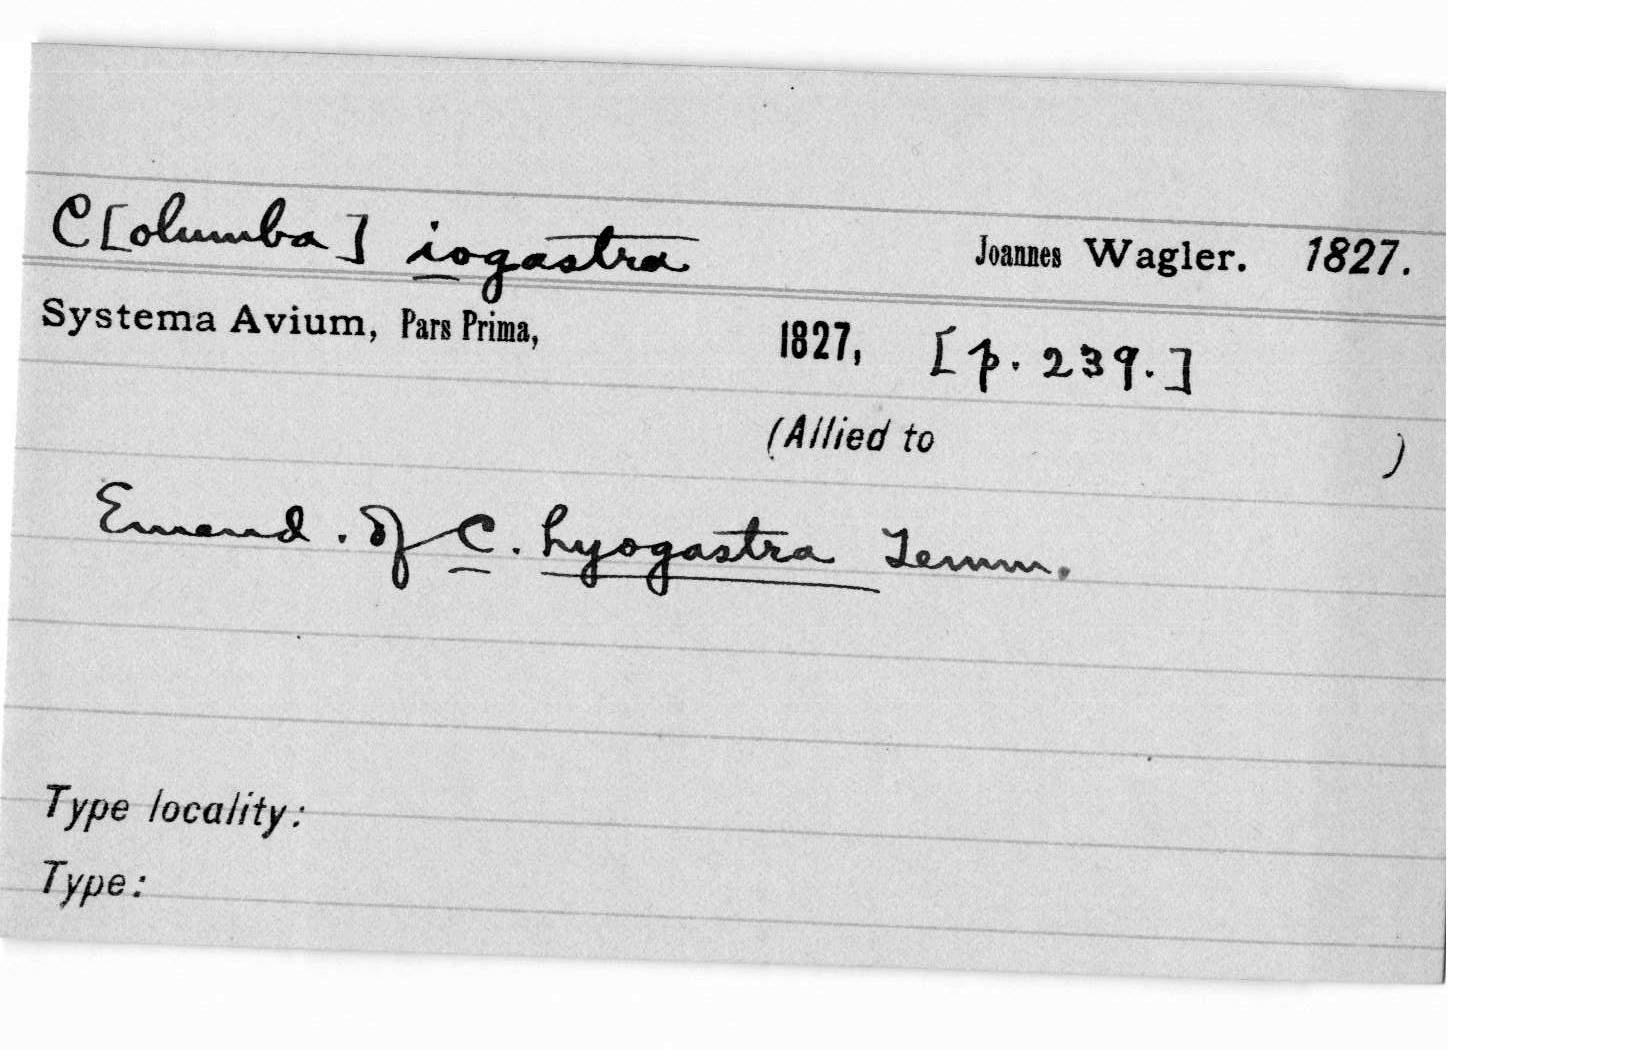 C[olumba] iogastra Joannes Wagler. 1827.
Systema Avium, Pars Prima, 1827, [p. 239.]
(Allied to )
Emend. of C. hyogastra Temm.
Type locality:
Type: